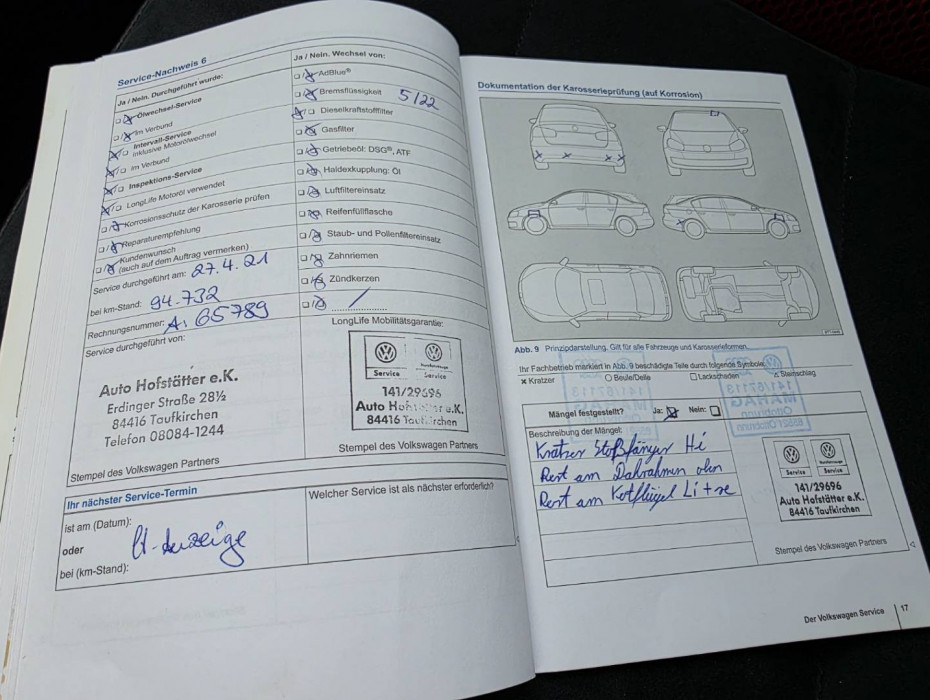 Service-Nachweis 6
Ja / Nein. Durchgeführt wurde:
Ölwechsel-Service
Im Verbund
Intervall-Service
inklusive Motorölwechsel
Im Verbund
Inspektions-Service
LongLife Motoröl verwendet
Korrosionsschutz der Karosserie prüfen
Reparaturempfehlung
Kundenwunsch
(auch auf dem Auftrag vermerken)
Service durchgeführt am: 27.4.21
bei km-Stand: 94.732
Rechnungsnummer: A. 65789
Service durchgeführt von:
Auto Hofstätter e.K.
Erdinger Straße 28½
84416 Taufkirchen
Telefon 08084-1244
Stempel des Volkswagen Partners
Ja / Nein. Wechsel von:
AdBlue®
Bremsflüssigkeit 5/22
Dieselkraftstofffilter
Gasfilter
Getriebeöl: DSG®, ATF
Haldexkupplung: Öl
Luftfiltereinsatz
Reifenfüllflasche
Staub- und Pollenfiltereinsatz
Zahnriemen
Zündkerzen
LongLife Mobilitätsgarantie:
Service Service
141/29696
Auto Hofstätter e.K.
84416 Taufkirchen
Stempel des Volkswagen Partners
Ihr nächster Service-Termin
ist am (Datum):
oder
bei (km-Stand):
lt. Anzeige
Welcher Service ist als nächster erforderlich?
Dokumentation der Karosserieprüfung (auf Korrosion)
Abb. 9 Prinzipdarstellung. Gilt für alle Fahrzeuge und Karosserieformen.
Ihr Fachbetrieb markiert in Abb. 9 beschädigte Teile durch folgende Symbole:
x Kratzer O Beule/Delle □ Lackschaden △ Steinschlag
141/67118
MAHAG
Ottobrunn
85521 Ottobrunn
Mängel festgestellt? Ja: Nein:
Beschreibung der Mängel:
Kratzer Stoßfänger Hi
Rost am Dahrahmen oben
Rost am Kotflügel Li + re
Service Service
141/29696
Auto Hofstätter e.K.
84416 Taufkirchen
Stempel des Volkswagen Partners
Der Volkswagen Service 17